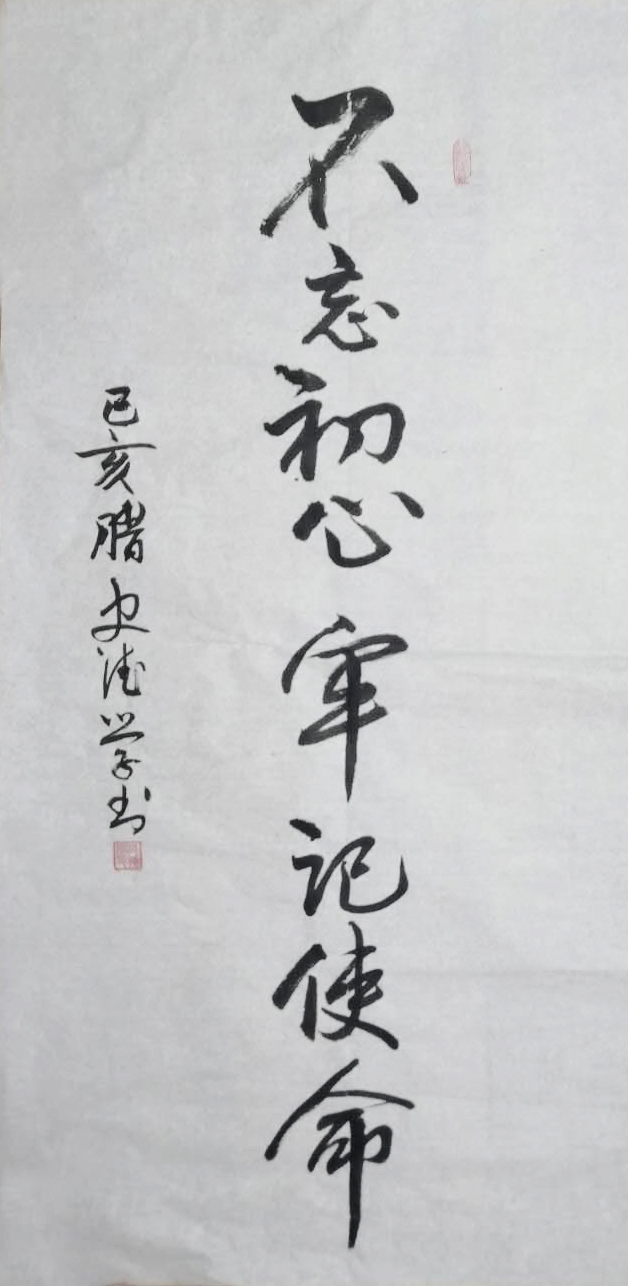 不忘初心牢记使命
己亥腊史德学书